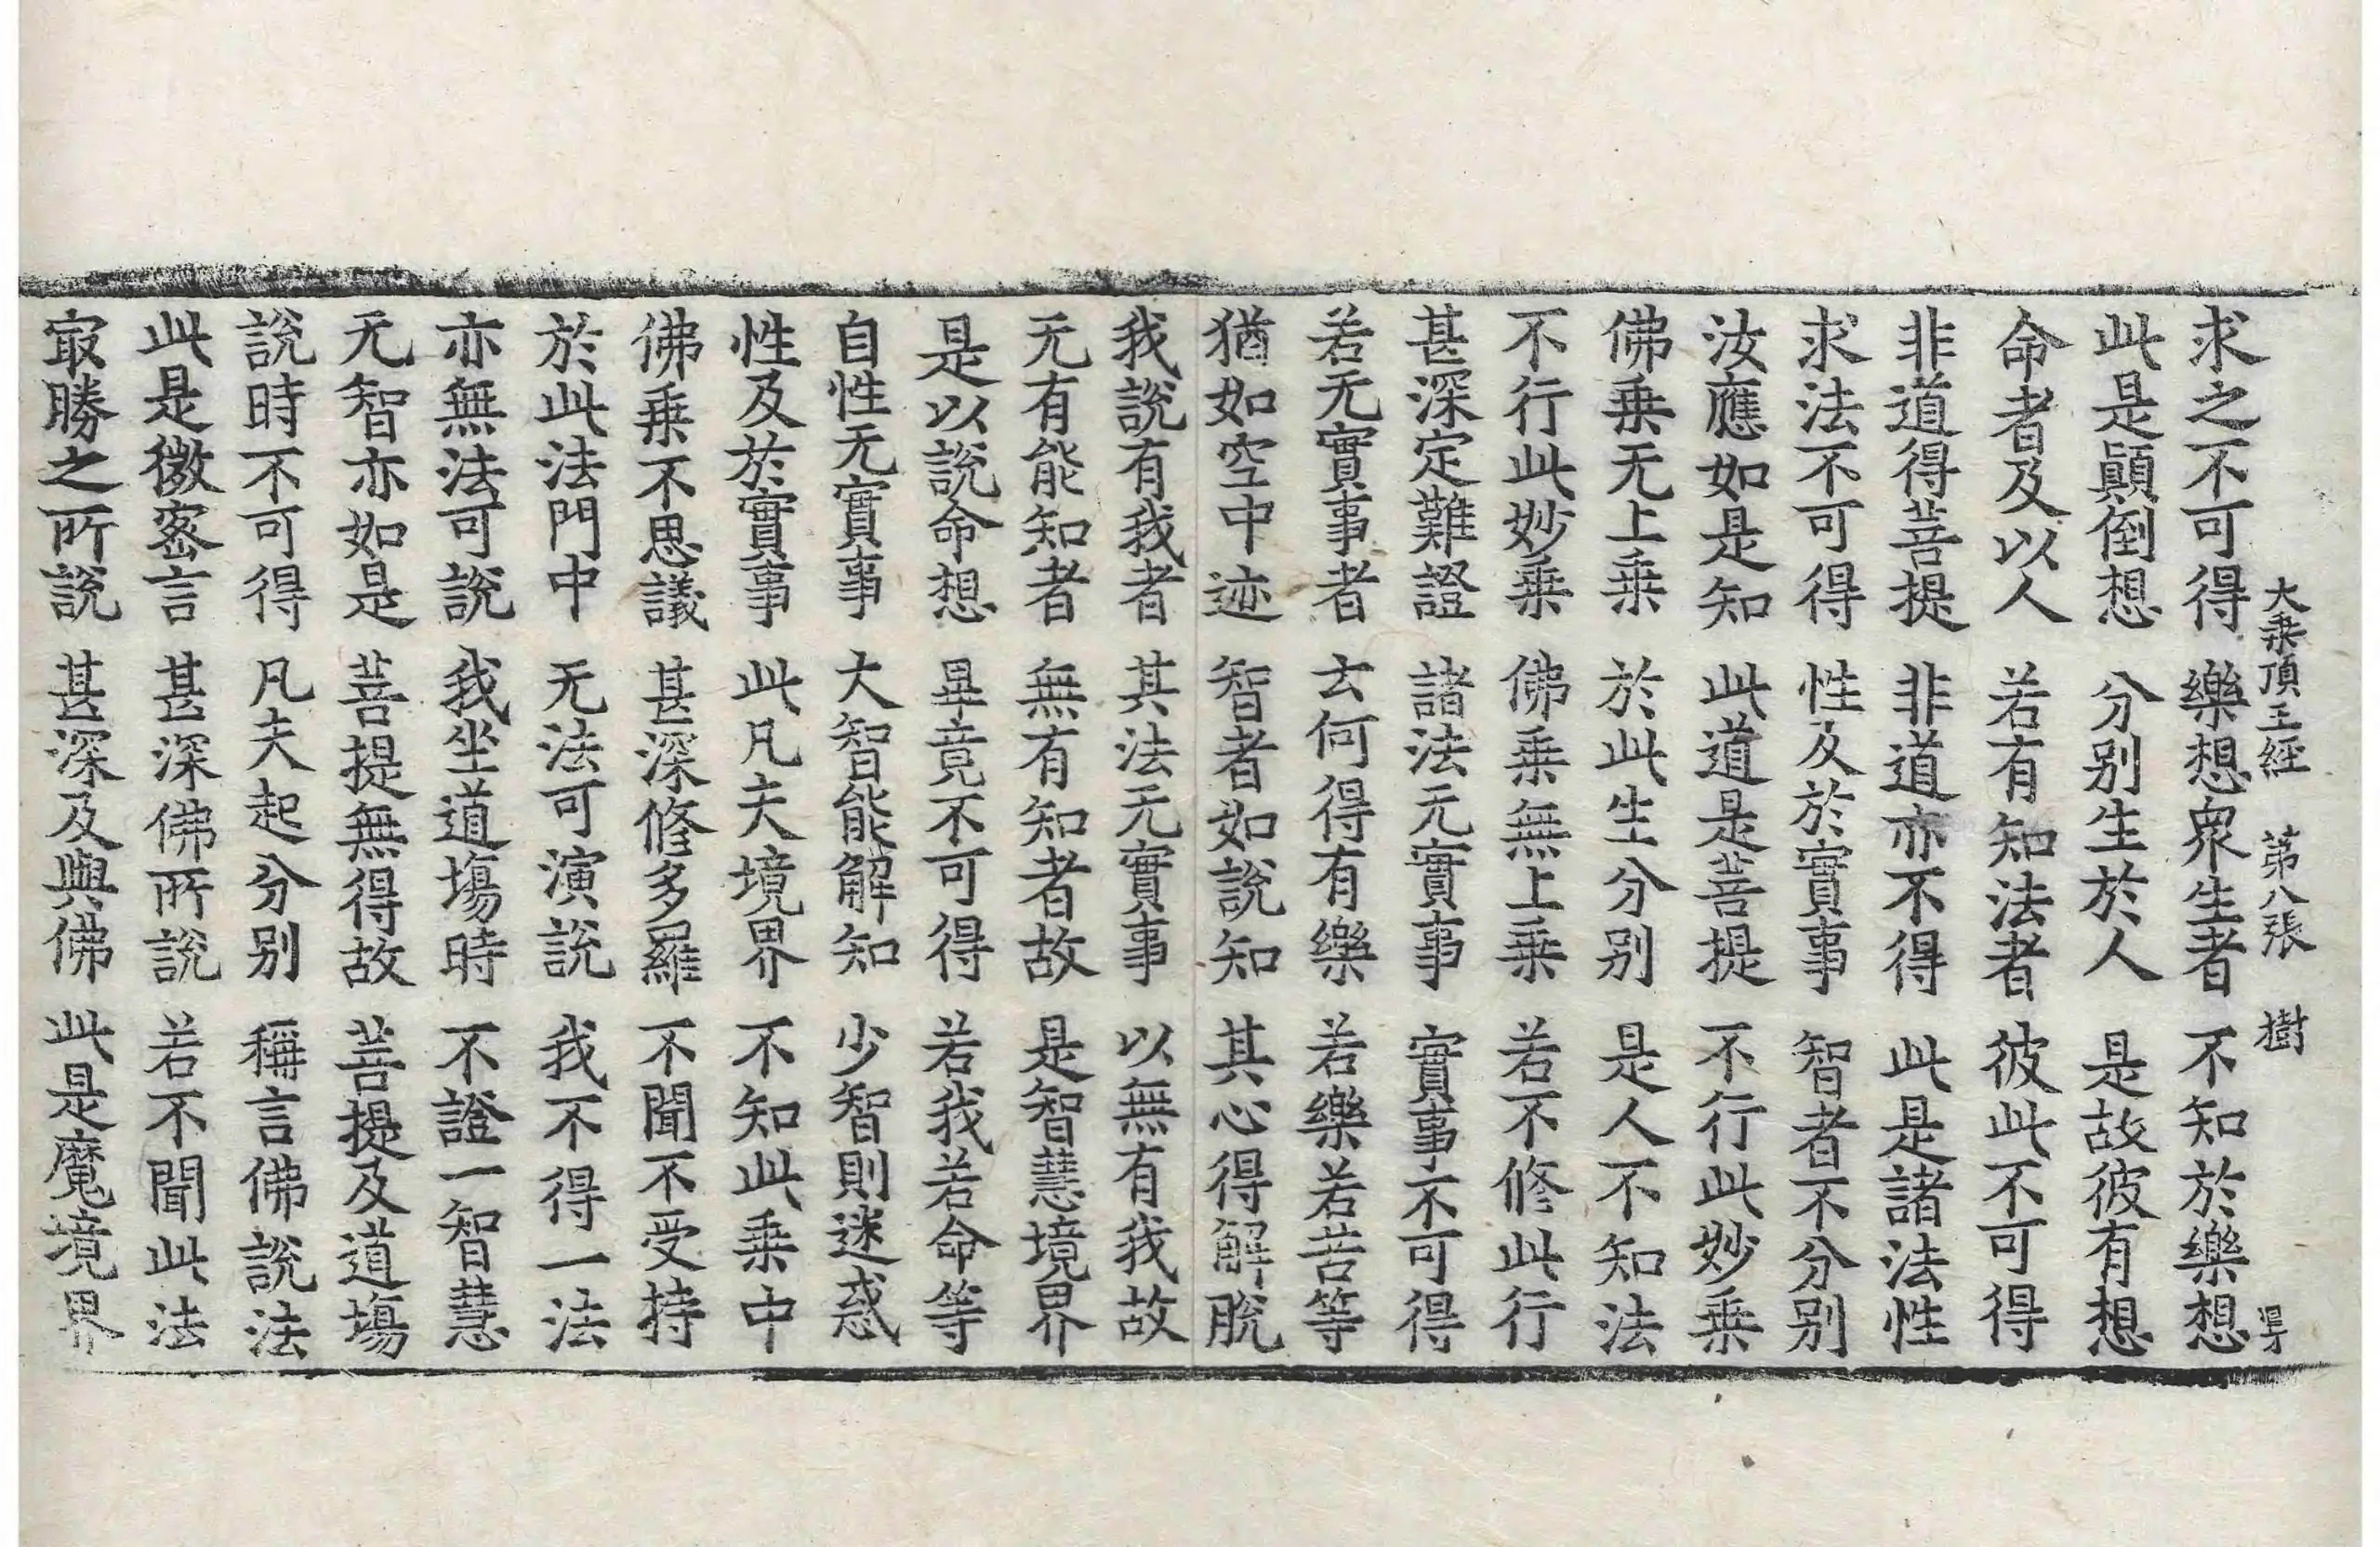 大乗頂王經 第八張 樹
求之不可得 樂想衆生者 不知於樂想
此是顚倒想 分别生於人 是故彼有想
命者及以人 若有知法者 彼此不可得
非道得菩提 非道亦不得 此是諸法性
求法不可得 性及於實事 智者不分别
汝應如是知 此道是菩提 不行此妙乗
佛乗无上乗 於此生分别 是人不知法
不行此妙乗 佛乗無上乗 若不修此行
甚深定難證 諸法无實事 實事不可得
若无實事者 云何得有樂 若樂若苦等
猶如空中迹 智者如說知 其心得解脫
我說有我者 其法无實事 以無有我故
无有能知者 無有知者故 是智慧境界
是以說命想 畢竟不可得 若我若命等
自性无實事 大智能解知 少智則迷惑
性及於實事 此凡夫境界 不知此乗中
佛乗不思議 甚深修多羅 不聞不受持
於此法門中 无法可演說 我不得一法
亦無法可說 我坐道場時 不證一智慧
无智亦如是 菩提無得故 菩提及道場
說時不可得 凡夫起分别 稱言佛說法
此是微密言 甚深佛所說 若不聞此法
冣勝之所說 甚深及與佛 此是魔境界